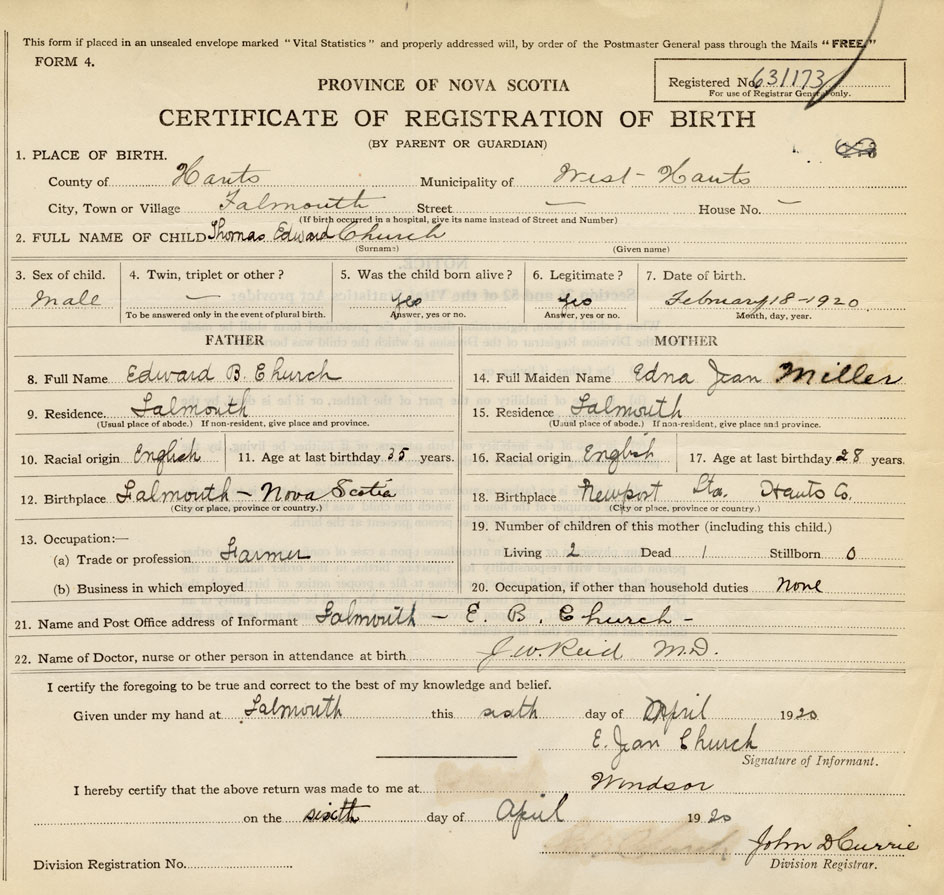 This form if placed in an unsealed envelope marked "Vital Statistics" and properly addressed will, by order of the Postmaster General pass through the Mails "FREE."
FORM 4.
Registered No. 631173
For use of Registrar General only.
PROVINCE OF NOVA SCOTIA
CERTIFICATE OF REGISTRATION OF BIRTH
(BY PARENT OR GUARDIAN)
1. PLACE OF BIRTH.
County of Hants Municipality of West-Hants
City, Town or Village Falmouth Street — House No. —
(If birth occurred in a hospital, give its name instead of Street and Number)
2. FULL NAME OF CHILD Thomas Edward Church
(Surname) (Given name)
3. Sex of child. 4. Twin, triplet or other? 5. Was the child born alive? 6. Legitimate? 7. Date of birth.
Male — Yes Yes February 18-1920
To be answered only in the event of plural birth. Answer, yes or no. Answer, yes or no. Month, day, year.
FATHER MOTHER
8. Full Name Edward B. Church 14. Full Maiden Name Edna Jean Miller
9. Residence. Falmouth 15. Residence Falmouth
(Usual place of abode.) If non-resident, give place and province. (Usual place of abode.) If non-resident, give place and province.
10. Racial origin English 11. Age at last birthday 35 years. 16. Racial origin English 17. Age at last birthday 28 years.
12. Birthplace Falmouth - Nova Scotia 18. Birthplace Newport Sta. Hants Co.
(City or place, province or country.) (City or place, province or country.)
13. Occupation:— 19. Number of children of this mother (including this child.)
(a) Trade or profession Farmer Living 2 Dead 1 Stillborn 0
(b) Business in which employed 20. Occupation, if other than household duties None
21. Name and Post Office address of Informant Falmouth - E. B. Church -
22. Name of Doctor, nurse or other person in attendance at birth J. W. Reid M.D.
I certify the foregoing to be true and correct to the best of my knowledge and belief.
Given under my hand at Falmouth this sixth day of April 1920
E. Jean Church
Signature of Informant.
I hereby certify that the above return was made to me at Windsor
on the sixth day of April 1920
John D Currie
Division Registration No. Division Registrar.